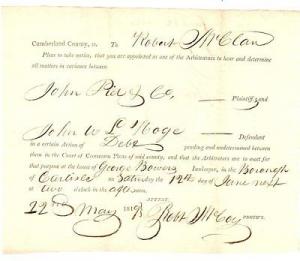 Cumberland County, ss. To Robert McClan
Please to take notice, that you are appointed as one of the Arbitrators to hear and determine
all matters in variance between
John & Co, Plaintiff and
John W Hoge Defendant
in a certain Action of Debt pending and undetermined between
them in the Court of Common Pleas of said county, and that the Arbitrators are to meet for
that purpose at the house of George Bowers Innkeeper, in the Borough
of Carlisle on Saturday the 12th day of June next
at two o'clock in the after noon.
ATTEST
22nd May 1819 Robt McCoy PROTHY.